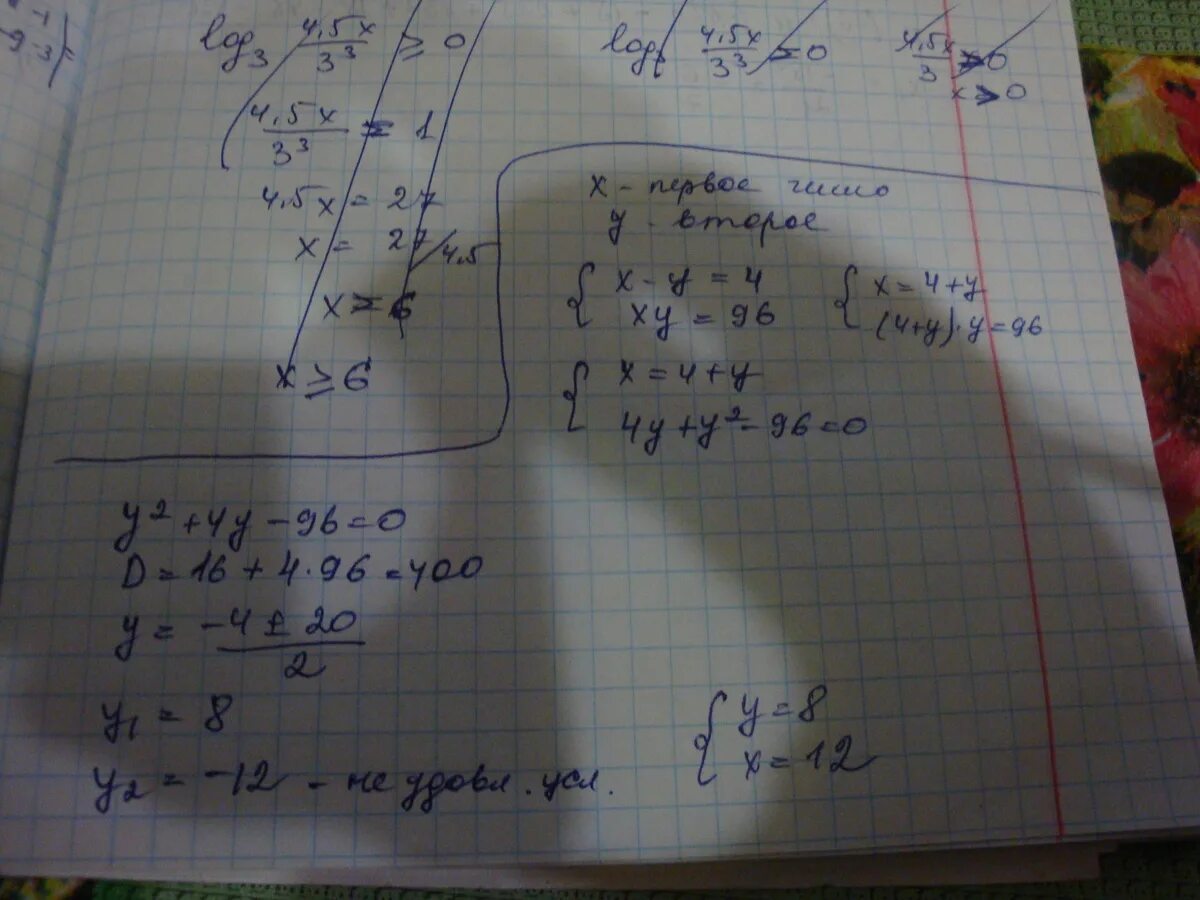 log₃ 4,5x/3³ ≥ 0
4,5x/3³ = 1
4,5x = 27
x = 27/4,5
x = 6
x ≥ 6
log 4,5x/3³ = 0
4,5x/3 > 0
x > 0
x - первое число
y - второе
{ x - y = 4
xy = 96
{ x = 4 + y
(4+y)·y = 96
{ x = 4 + y
4y + y² - 96 = 0
y² + 4y - 96 = 0
D = 16 + 4·96 = 400
y = (-4 ± 20)/2
y₁ = 8
y₂ = -12 - не удовл. усл.
{ y = 8
x = 12